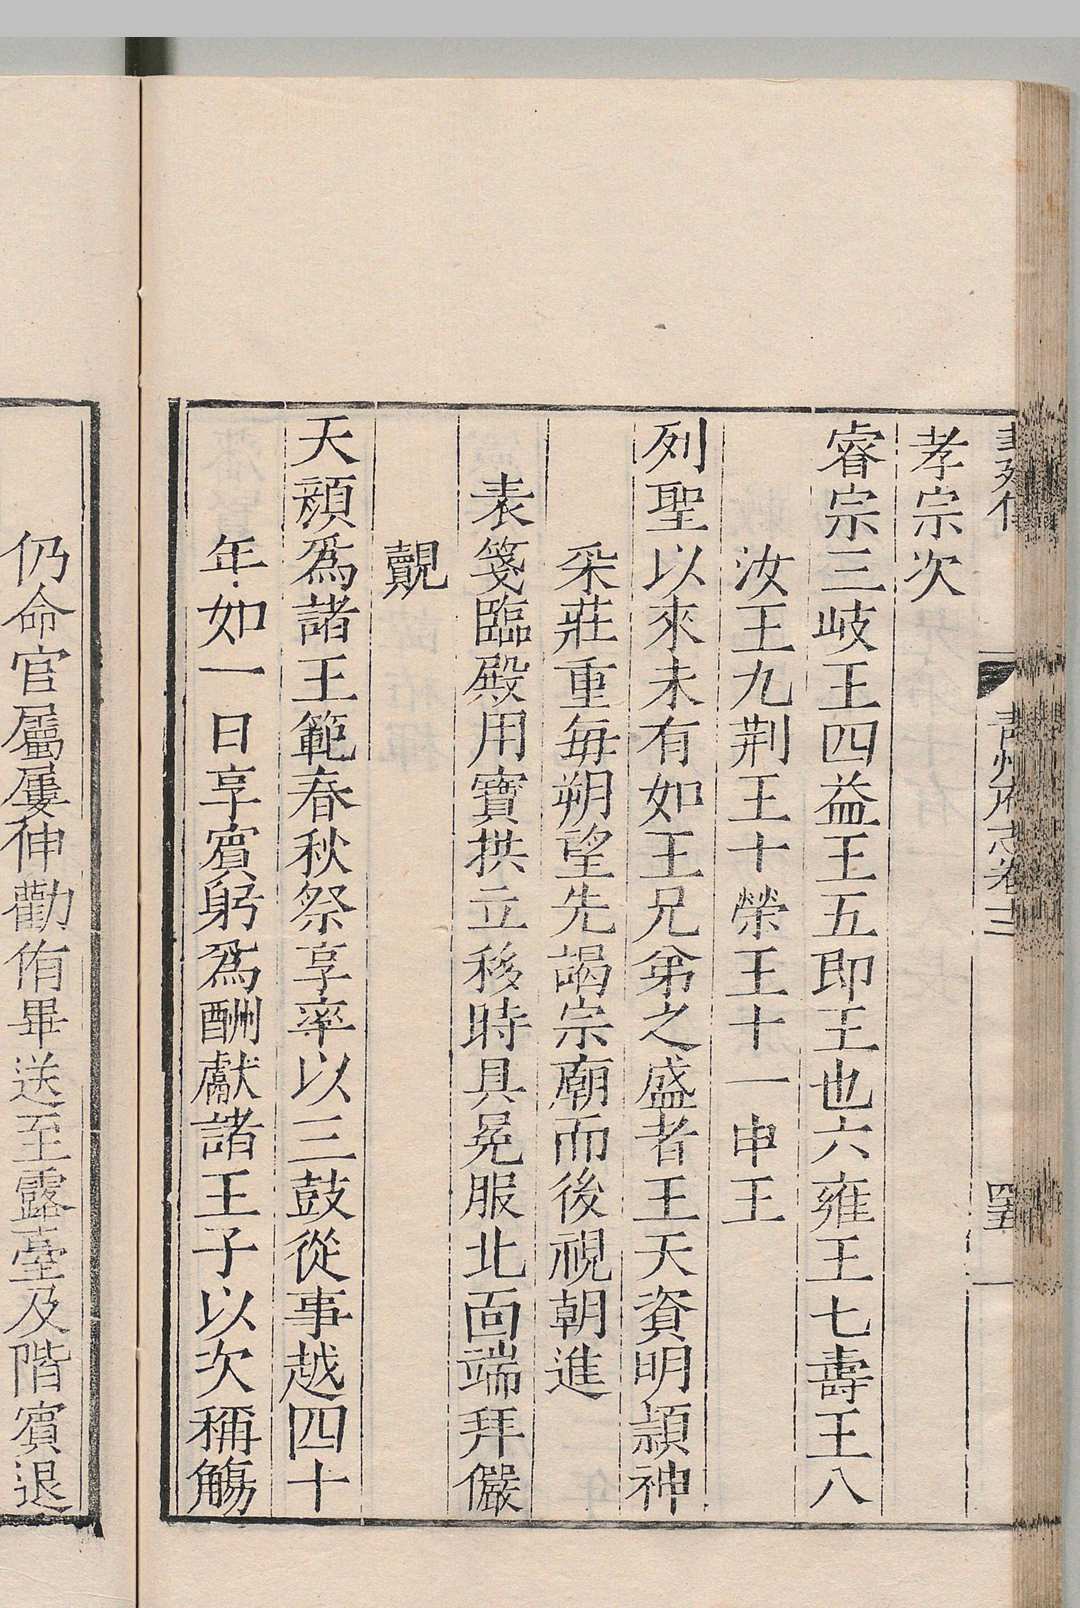 青州府志卷十三
孝宗次
睿宗三岐王四益王五即王也六雍王七壽王八
汝王九荆王十榮王十一申王
列聖以來未有如王兄弟之盛者王天資明頴神
采莊重每朔望先謁宗廟而後視朝進
表箋臨殿用寶拱立移時具冕服北面端拜儼
覿
天顔爲諸王範春秋祭享率以三鼓從事越四十
年如一日享賓躬爲酬獻諸王子以次稱觴
仍命官屬屢伸勸侑畢送至露臺及階賓退